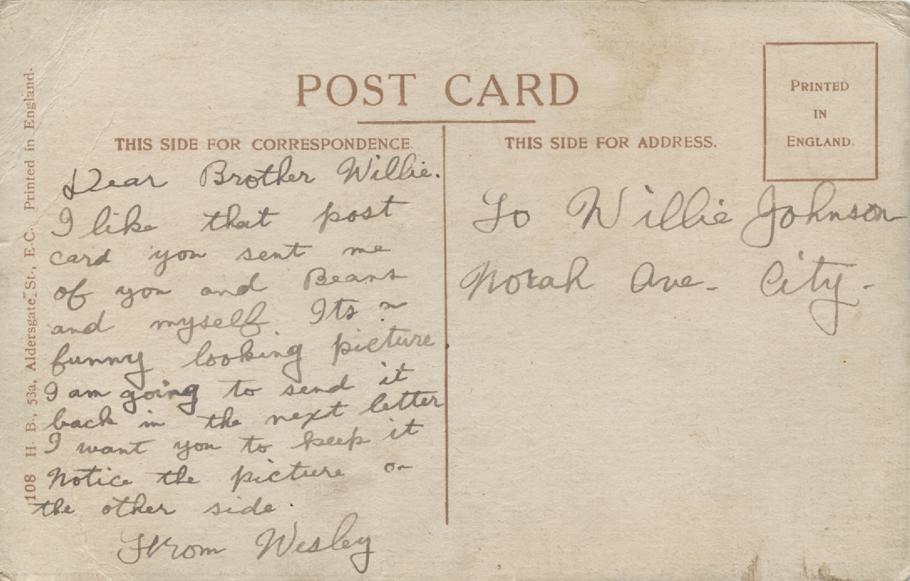 POST CARD
THIS SIDE FOR CORRESPONDENCE
THIS SIDE FOR ADDRESS.
PRINTED
IN
ENGLAND.
Dear Brother Willie.
I like that post
card you sent me
of you and Beans
and myself. Its a
funny looking picture.
I am going to send it
back in the next letter
I want you to keep it
Notice the picture on
the other side.
From Wesley
To Willie Johnson
Norah Ave. City.
108 H. B., 53a, Aldersgate St., E.C. Printed in England.